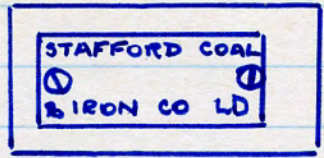 STAFFORD COAL
& IRON CO LD